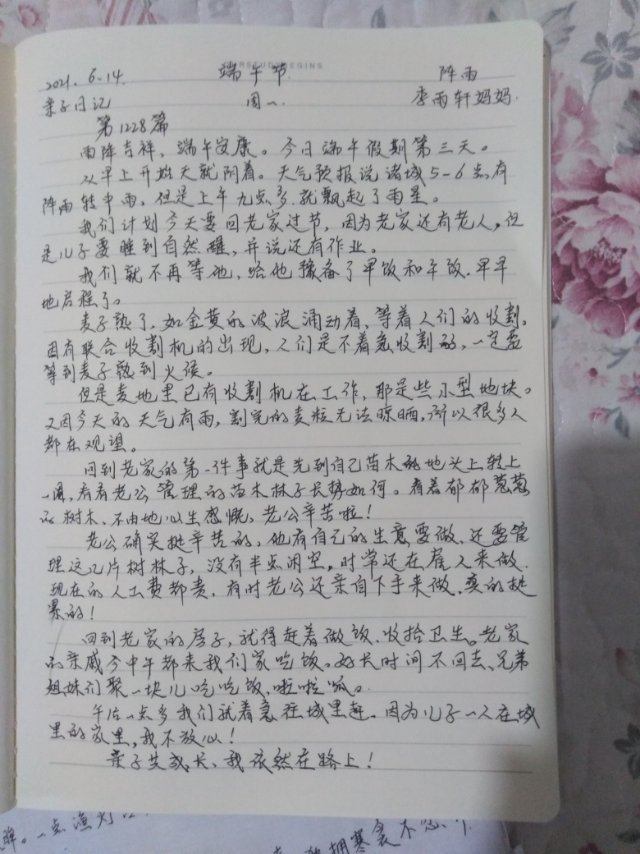 2021. 6.14. 端午节. 阵雨
亲子日记 周一. 李雨轩妈妈.
第1228篇
雨阵吉祥, 端午安康。今日端午假期第三天。
从早上开始天就阴着。天气预报说诸城5-6点有
阵雨转中雨, 但是上午九点多就飘起了雨星。
我们计划今天要回老家过节, 因为老家还有老人, 但
是儿子要睡到自然醒, 并说还有作业。
我们就不再等他, 给他预备了早饭和午饭, 早早
地启程了。
麦子熟了, 如金黄的波浪涌动着, 等着人们的收割。
因有联合收割机的出现, 人们是不着急收割的, 一定要
等到麦子熟到火候。
但是麦地里已有收割机在工作, 那是些小型地块。
又因今天的天气有雨, 割完的麦粒无法晾晒, 所以很多人
都在观望。
回到老家的第一件事就是先到自己苗木的地头上转上
一圈, 看看老公管理的苗木林子长势如何。看着郁郁葱葱
的树木, 不由地心生感慨, 老公辛苦啦!
老公确实挺辛苦的, 他有自己的生意要做, 还要管
理这几片树林子, 没有半点闲空, 时常还在雇人来做.
现在的人工费都贵, 有时老公还亲自下手来做, 真的挺
累的!
回到老家的房子, 就得赶着做饭、收拾卫生。老家
的亲戚今中午都来我们家吃饭。好长时间不回去、兄弟
姐妹们聚一块儿吃吃饭, 啦啦呱。
午后一点多我们就着急往城里赶。因为儿子一人在城
里的家里, 我不放心!
亲子共成长, 我依然在路上!